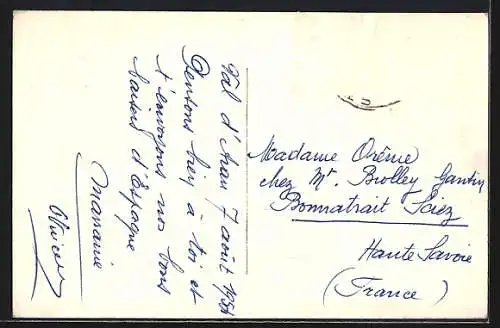 Val d'Aran 7 août 1951
Pensons bien à toi et
t'envoyons nos bons
baisers d'Espagne
Maxanne
Madame Orême
chez Mr. Brolley Gantin
Bonnatrait Sciez
Haute Savoie
(France)